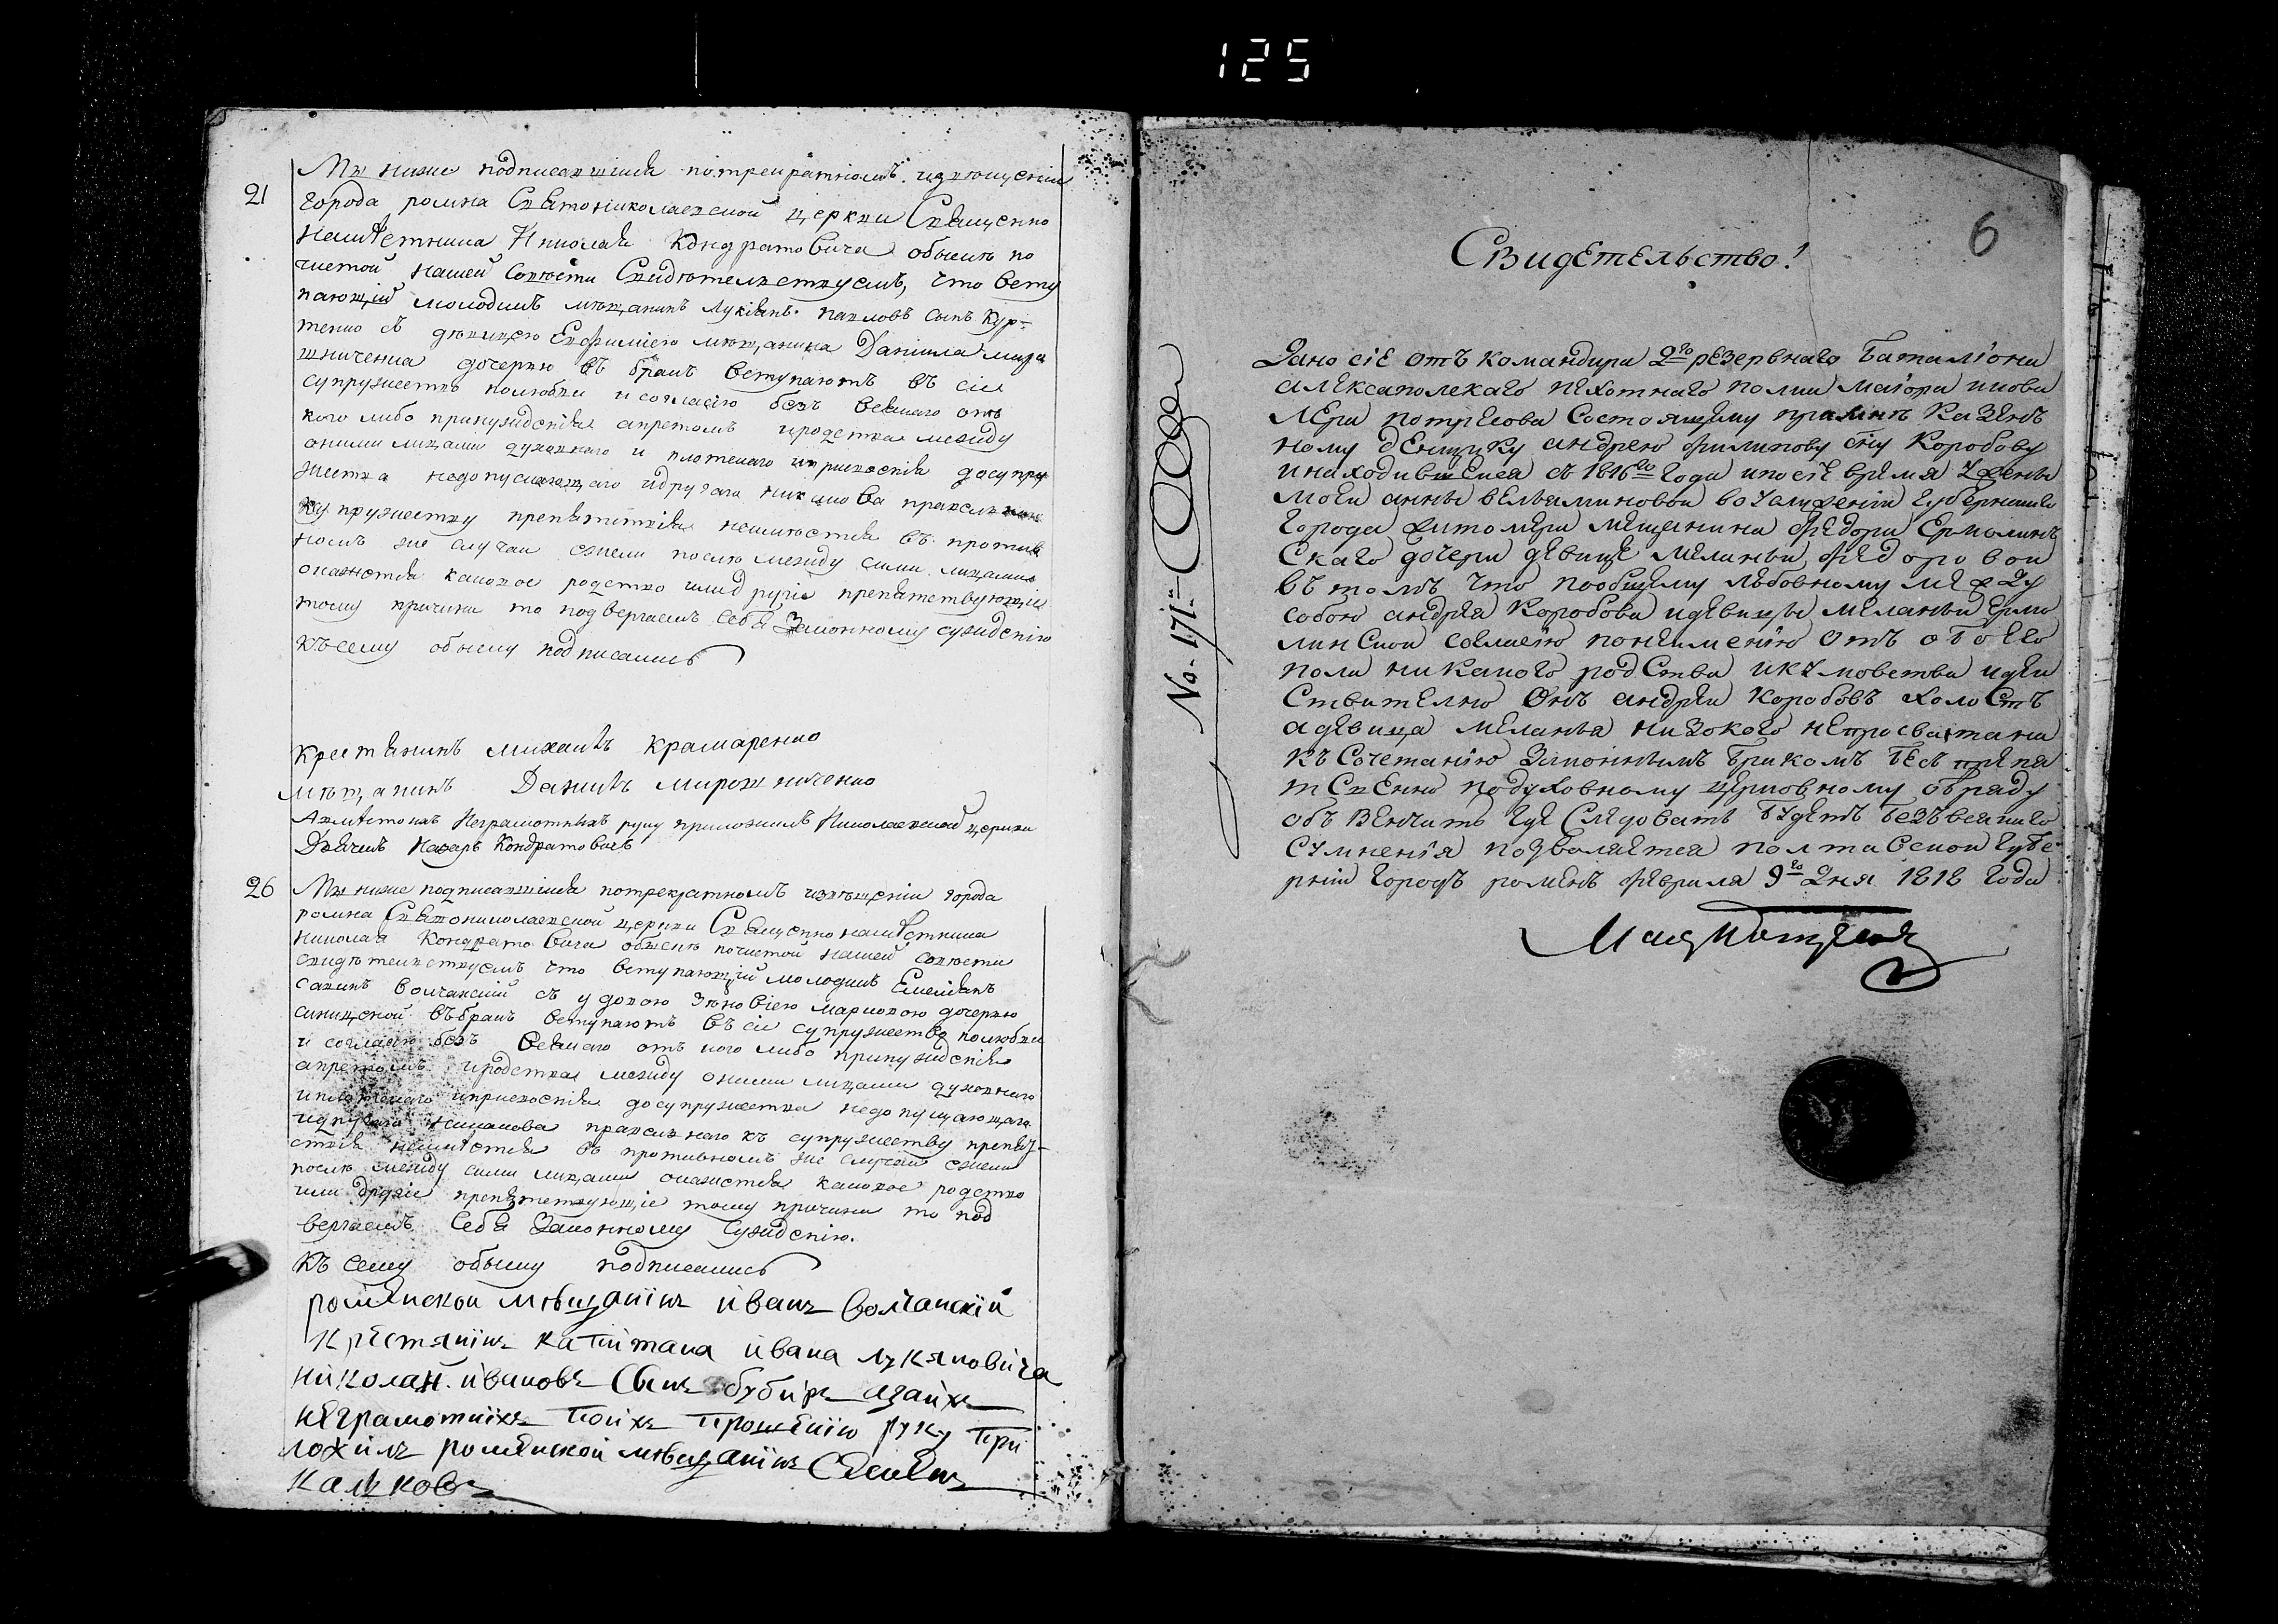 125
21
Мы ниже подписавшиися потрекратномъ извещении
города ромна Святониколаевской церкви Священно
наместника Николая Кондратовича обыскъ по
чистой нашей совѣсти Свидѣтелствуемъ, что всту
пающiй молодикъ мѣщанинъ Лукiянъ павловъ сынъ Кур-
тенко съ дѣвицею Евфимиею мѣщанина Данiила миро
шниченка дочерью въ бракъ вступаютъ въ сiе
супружество полюбви исогласiю безъ всякаго отъ
кого либо принужденiя апритомъ иродства между
оними лицами духовнаго и плотскаго
недопускающаго идругаго никакова правилнаго
ксупружеству препятствiя неимѣется въ против
номъ же случаи ежели послѣ между сими лицами
окажется каковое родство или другiе препятствующiе
тому причини то подвергаемъ Себя Законному сужденiю
Къ сему обыску подписались
Крестянинъ михаилъ Крамаренко
мѣщанинъ Данилъ мирошниченко
Авмѣсто ихъ Неграмотныхъ руку приложилъ Николаевской церкви
Дячекъ Назаръ Кондратовичъ
26
Мы ниже подписавшiися потрекратномъ извѣщенiи города
ромна Святониколаевской церкви Священно наместника
Николая Кондратовича обыскъ почистой нашей совѣсти
свидѣтелствуемъ что вступающiй молодикъ Емелiянъ
Савинъ волчанскiй съ удовою Зѣновiею марковою дочерью
въбракъ вступаютъ въ сiе супружество полюбви
и согласiю безъ всякаго отъ кого либо принужденiя
апритомъ иродства между оними лицами духовнаго
иплотскаго досупружества недопущающаго
идругаго никакова правилнаго къ супружеству препят-
ствiя неимѣется въ противномъ же случаи ежели
послѣ между сими лицами окажется каковое родство
или другiе препятствующiе тому причини то под
вергаемъ Себя Законному Сужденiю.
Къ сему обыску подписались
роменской мѣщанiнъ iванъ волчанскiй
крестянiнъ капiтана iвана лукяновiча
нiколай iвановъ Сынъ бубiръ азаiхъ
неграмотнiхъ поiхъ прошенiю руку при
ложiлъ роменской мѣщанiнъ Семенъ
калковъ
6
Свидетельство!
No. 171.
Дано сiе отъ командира 2го резервнаго баталiона
алексополскаго пехотнаго полка маiора икова
лера потресова Состоящему примне казенъ
ному денщику андрею филипову сну Коробову
инаходившемся съ 1816го года ипосiе время у жены
моеи анны вельяминовои вочслуженiи губернскаго
города житомера мещанина федора Ермолинъ
скаго дочери девице меланьи федоровои
въ томъ что пообщему любовному между
собою андрея Коробова идевицы меланьи Ермо
линскои согласiю понеимению отъ обоего
пола никакого родства икумовства идеи
ствително Онъ андреи Коробовъ холостъ
адевица меланья низакого непросватана
къ Сочетанiю Законнымъ бракомъ бесъ препя
тственно подуховному церковному обряду
обвенчить где Следовать будетъ безъвсякаго
сумненiя позволяется полтавскои губе
рнiи городъ роменъ февраля 9го Дня 1818 года
Маiоръ Потресовъ